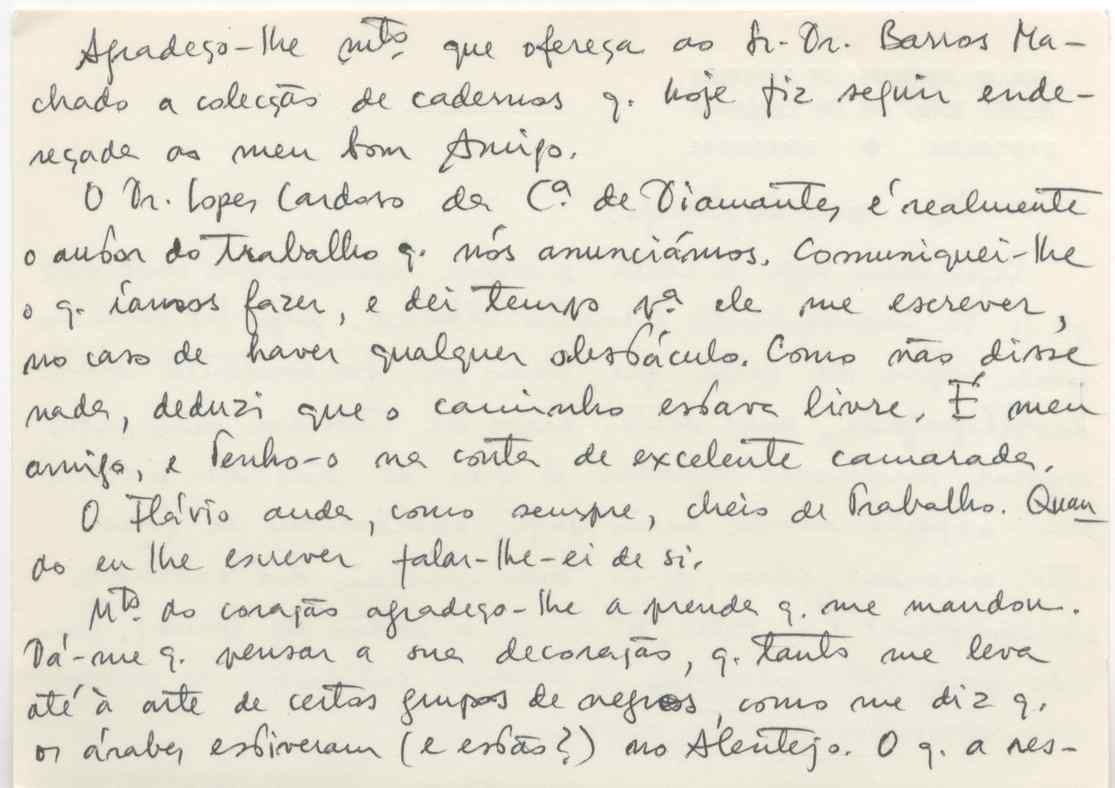 Agradeço-lhe mto. que ofereça ao Sr. Dr. Barros Ma-
chado a colecção de cadernos q. hoje fiz seguir ende-
reçada ao meu bom Amigo.
O Dr. Lopes Cardoso da Cª. de Diamantes é realmente
o autor do trabalho q. nós anunciámos. Comuniquei-lhe
o q. íamos fazer, e dei tempo pª ele me escrever,
no caso de haver qualquer obstáculo. Como não disse
nada, deduzi que o caminho estava livre. É meu
amigo, e tenho-o na conta de excelente camarada.
O Flávio anda, como sempre, cheio de trabalho. Quan
do eu lhe escrever falar-lhe-ei de si.
Mto. do coração agradeço-lhe a prenda q. me mandou.
Dá-me q. pensar a sua decoração, q. tanto me leva
até à arte de certos grupos de negros, como me diz q.
os árabes estiveram (e estão?) no Alentejo. O q. a res-